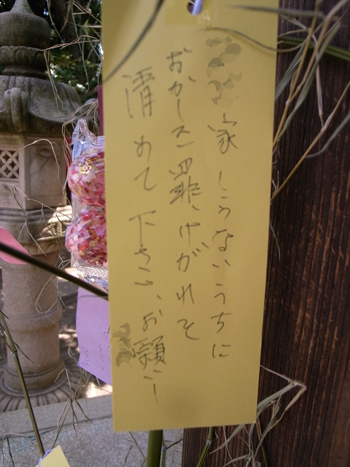 家 しらないうちに
おかした罪けがれを
清めて下さい、お願い